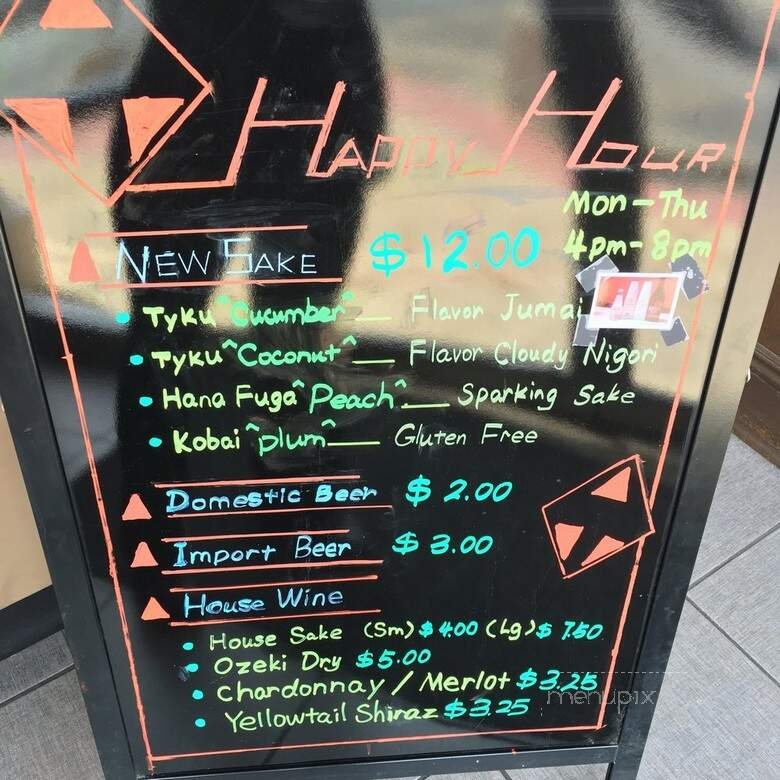 Happy Hour
Mon - Thu
4pm - 8pm
New Sake $12.00
• Tyku ^Cucumber^ — Flavor Jumai
• Tyku ^Coconut^ — Flavor Cloudy Nigori
• Hana Fuga ^Peach^ — Sparking Sake
• Kobai ^plum^ — Gluten Free
Domestic Beer $2.00
Import Beer $3.00
House Wine
• House Sake (Sm) $4.00 (Lg) $7.50
• Ozeki Dry $5.00
• Chardonnay / Merlot $3.25
• Yellowtail Shiraz $3.25
menupix